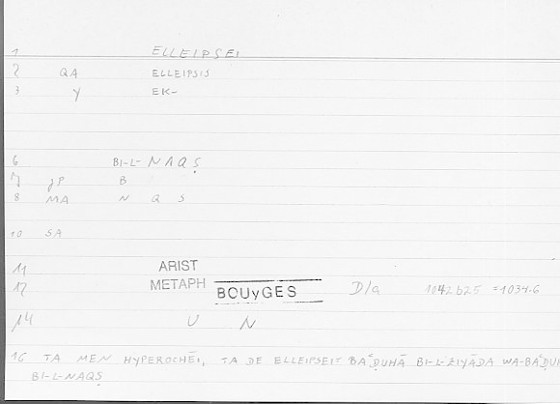 1 ELLEIPSEI
2 QA ELLEIPSIS
3 Y EK-
6 BI-L-NAQṢ
7 jP B
8 MA N Q S
10 SA
11 ARIST
12 METAPH BOUyGES D/a 1042b25 = 1034.6
14 U N
16 TA MEN HYPEROCHĒI, TA DE ELLEIPSEI BAʿḌUHĀ BI-L-ZIYĀDA WA-BAʿḌUH
BI-L-NAQṢ